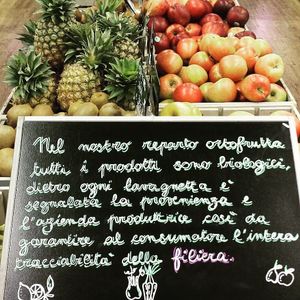 Nel nostro reparto ortofrutta
tutti i prodotti sono biologici,
dietro ogni lavagnetta è
segnalata la provenienza e
l'azienda produttrice così da
garantire al consumatore l'intera
tracciabilità della filiera.